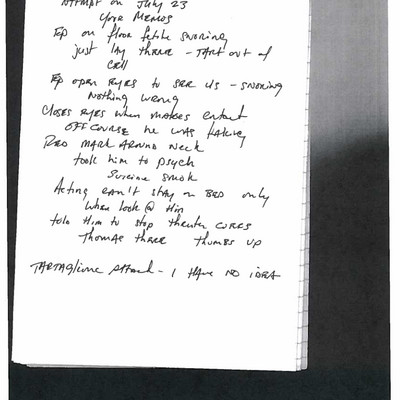 Attempt on July 23
your Memos
Ep on floor fetile snoring
just lay there - TART out of
cell
Ep open eyes to see us - snoring
nothing wrong
Closes eyes when makes contact
OFF COURSE he was faking
Red MARK AROUND Neck
took him to psych
Suicide smok
Acting can't stay on BED only
when look @ Him
told Him to stop theater
Thomas there thumbs up
TARTAGlione Attack - I HAVE NO IDEA